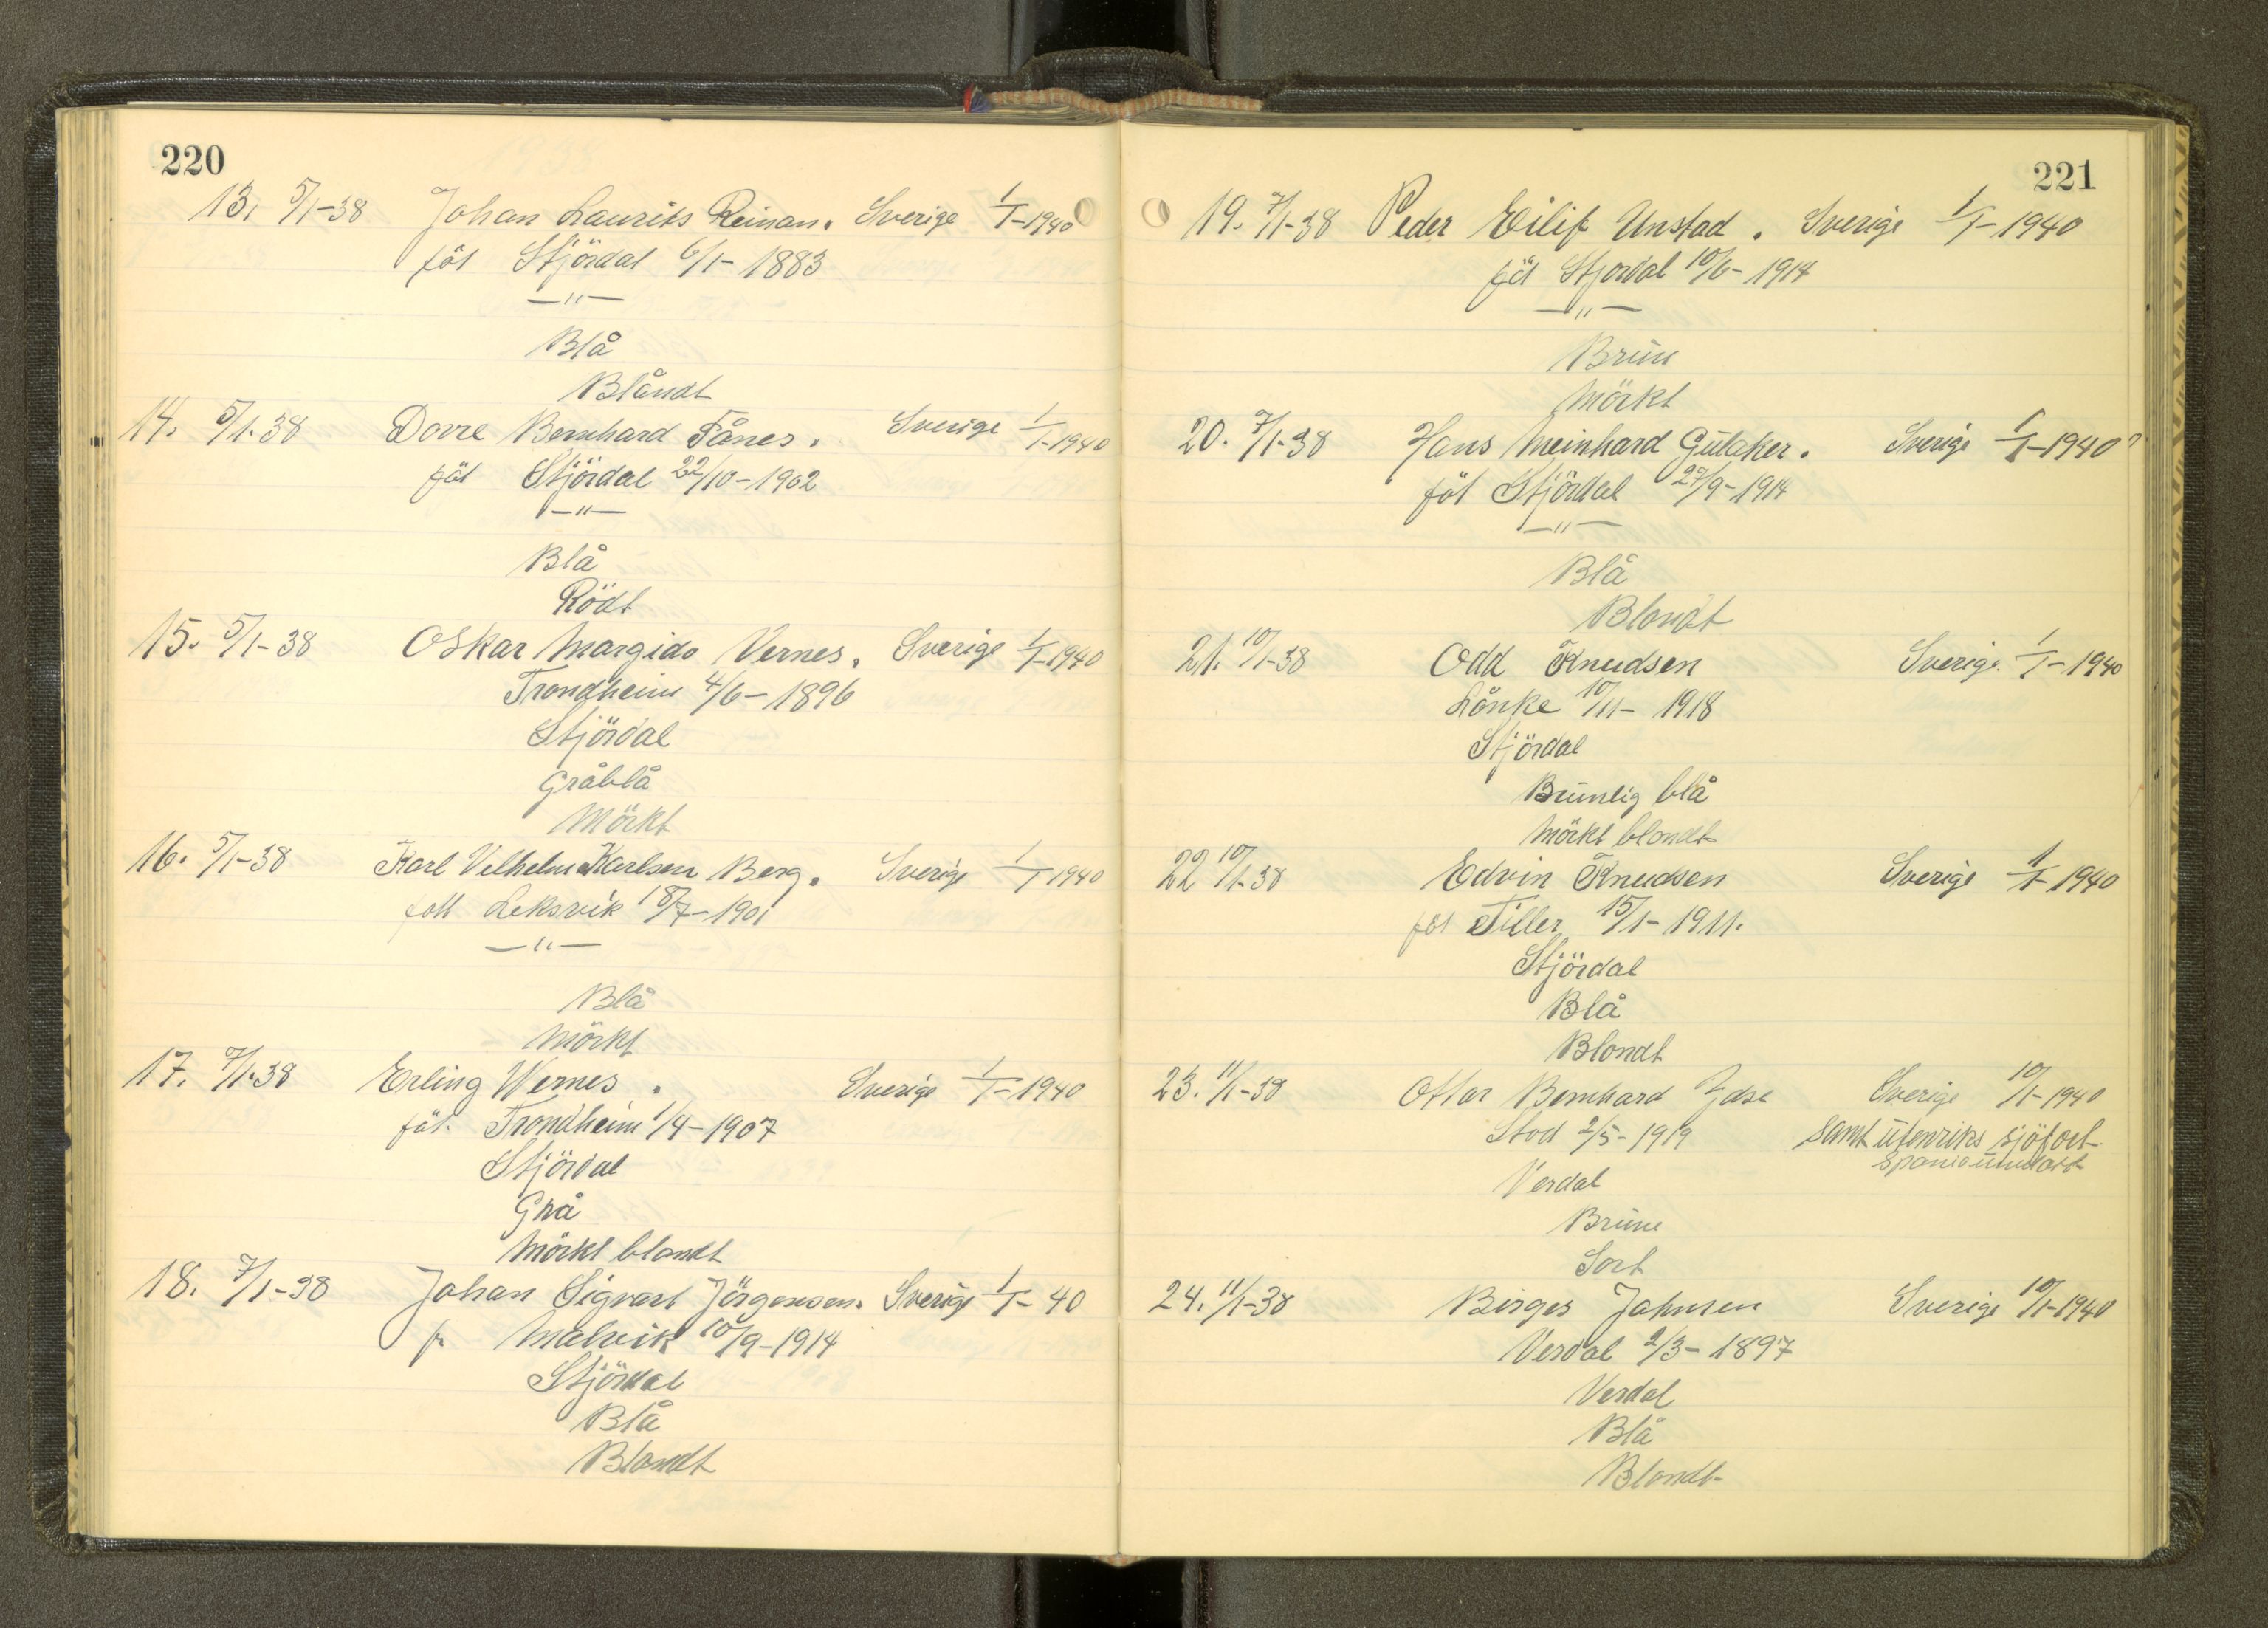 220
13. 5/1-38 Johan Laurits Reinan. Sverige 1/1-1940
föt Stjördal 6/1-1883
-"-
Blå
Blåndt
14. 5/1-38 Dorre Bernhard Fånes. Sverige 1/1-1940
föt Stjördal 22/10-1902
-"-
Blå
Rödt
15. 5/1-38 Oskar Margido Vernes. Sverige 1/1-1940
Trondheim 4/6-1896
Stjördal
Gråblå
Mörkt
16. 5/1-38 Karl Vilhelm Karlsen Berg. Sverige 1/1 1940
fött Leksvik 18/7-1901
-"-
Blå
Mörkt
17. 7/1-38 Erling Wernes. Sverige 1/1-1940
föt. Trondheim 1/4-1907
Stjördal
Grå
Mörkt blondt
18. 7/1-38 Johan Sigvart Jörgensen. Sverige 1/1-40
f. Malvik 10/9-1914
Stjördal
Blå
Blondt
221
19. 7/1-38 Peder Eilif Unstad. Sverige 1/1-1940
föt Stjordal 10/6-1914
-"-
Brun
Mörkt
20. 7/1-38 Hans Meinhard Gulaker. Sverige 1/1-1940
föt Stjördal 27/9-1914
-"-
Blå
Blondt
21. 10/1-38 Odd Knudsen Sverige. 1/1-1940
Lånke 10/11-1918
Stjördal
Brunlig blå
Mörkt blondt
22 10/1-38 Edvin Knudsen Sverige 1/1-1940
föt Tiller 15/1-1911.
Stjördal
Blå
Blondt
23. 11/1-38 Ottar Bernhard Ydse Sverige 10/1-1940
Stod 2/5-1919 samt utenriks sjöfart
Spania undtatt
Verdal
Brune
Sort
24. 11/1-38 Birger Johnsen Sverige 10/1-1940
Verdal 2/3-1897
Verdal
Blå
Blondt